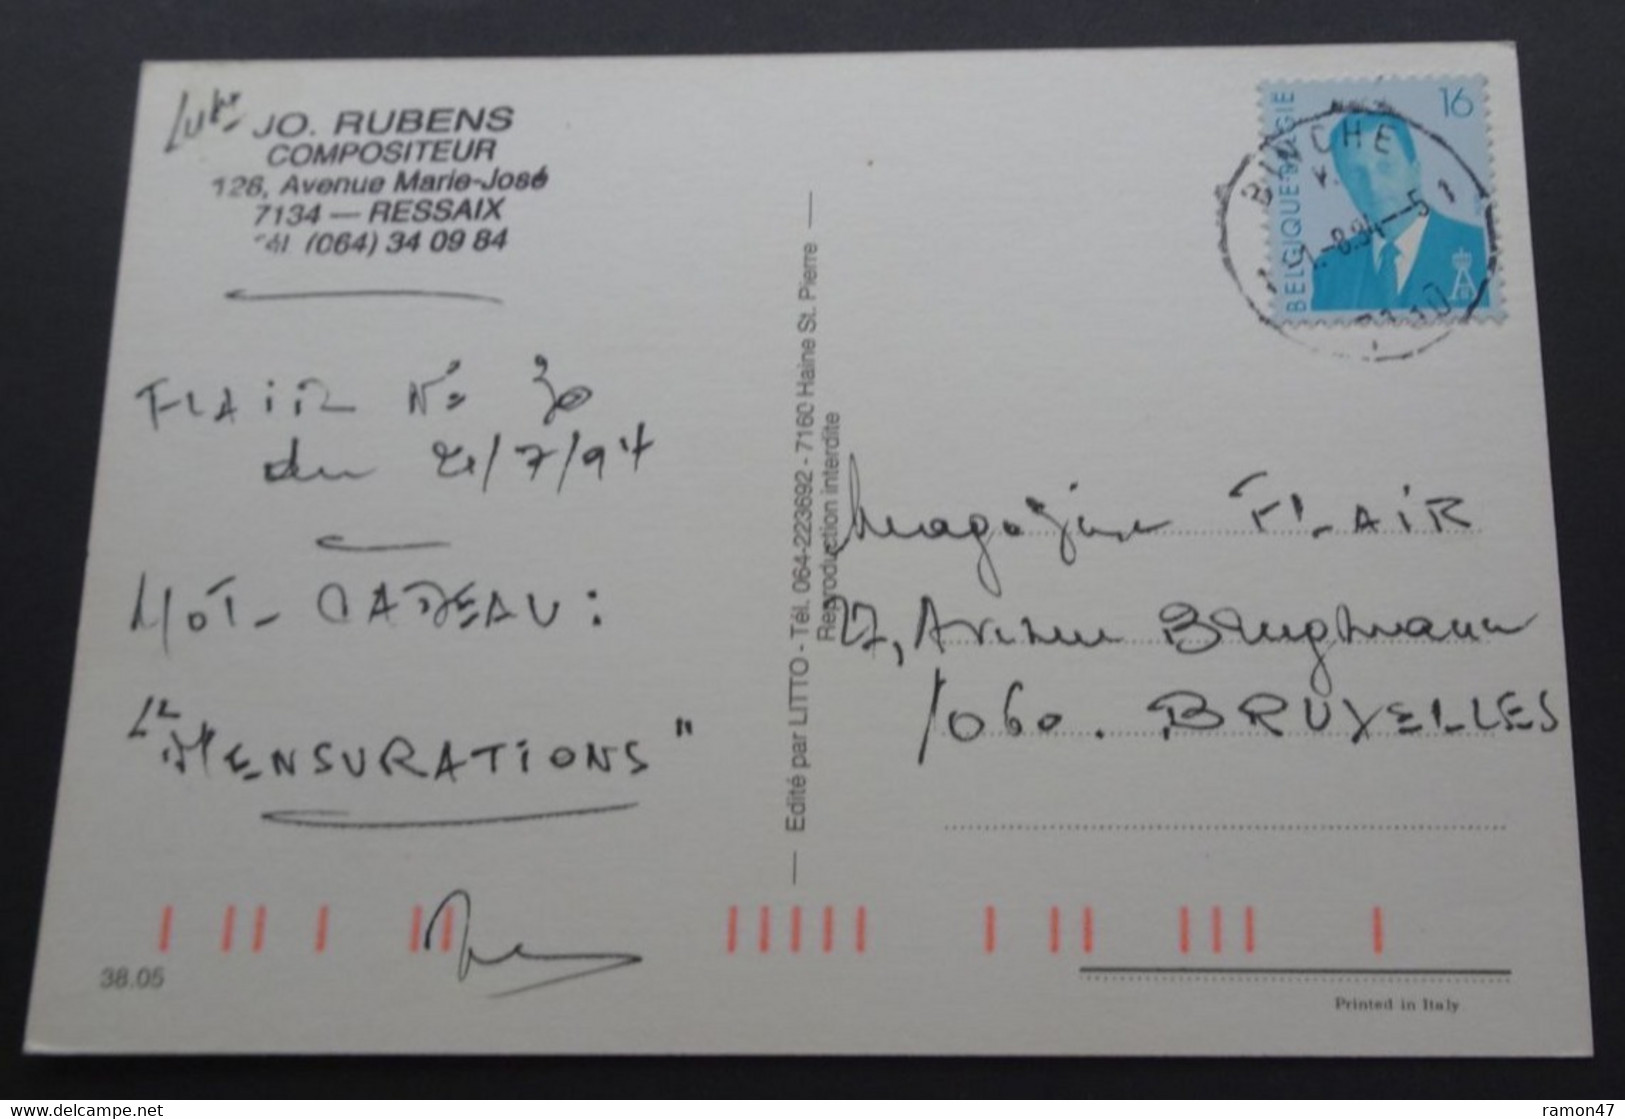 JO. RUBENS
COMPOSITEUR
126, Avenue Marie-José
7134 — RESSAIX
Tél. (064) 34 09 84
FLAIR N° 30
du 21/7/94
MOT-CADEAU:
"MENSURATIONS"
38.05
— Edité par LITTO - Tél. 064-223692 - 7160 Haine St. Pierre —
Reproduction interdite
BELGIQUE-BELGIE
16
BINCHE
-8.94--5
Magazine FLAIR
27, Avenue Brugmann
1060. BRUXELLES
Printed in Italy
delcampe.net
ramon47